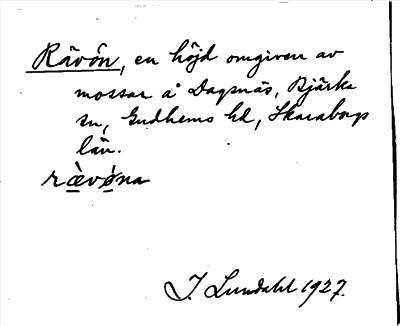 Rävön, en höjd omgiven av
mossar å Dagsnäs, Bjärka
sn, Gudhems hd, Skaraborgs
län.
rævøna
I. Lundahl 1927.